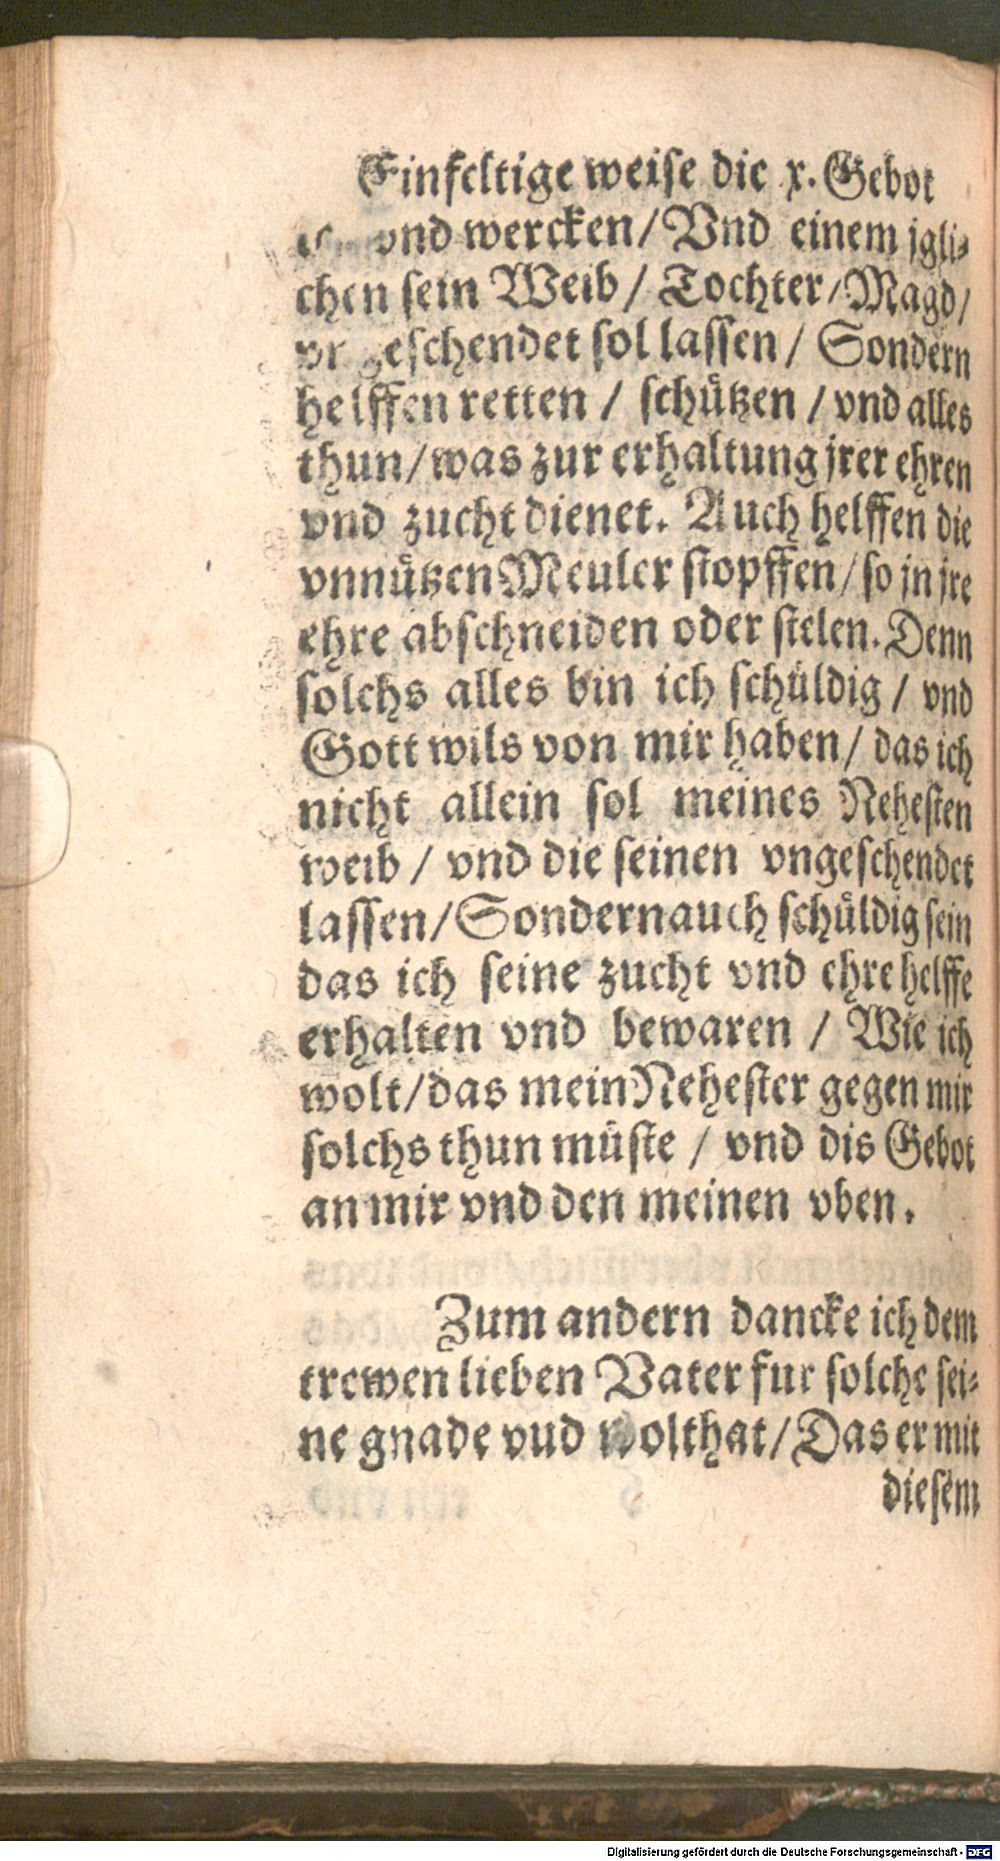 Einfeltige weise die x. Gebot
vnd wercken / Vnd einem jgli⸗
chen sein Weib / Tochter / Magd /
geschendet sol lassen / Sondern
helffen retten / schützen / vnd alles
thun / was zur erhaltung jrer ehren
vnd zucht dienet. Auch helffen die
vnnützen Meuler stopffen / so jn jre
ehre abschneiden oder stelen. Denn
solchs alles bin ich schüldig / vnd
Gott wils von mir haben / das ich
nicht allein sol meines Nehesten
weib / vnd die seinen vngeschendet
lassen / Sondern auch schüldig sein
das ich seine zucht vnd ehre helffe
erhalten vnd bewaren / Wie ich
wolt / das mein Nehester gegen mir
solchs thun müste / vnd dis Gebot
an mir vnd den meinen vben.
Zum andern dancke ich dem
trewen lieben Vater fur solche sei⸗
ne gnade vud wolthat / Das er mit
diesem
Digitalisierung gefördert durch die Deutsche Forschungsgemeinschaft - DFG